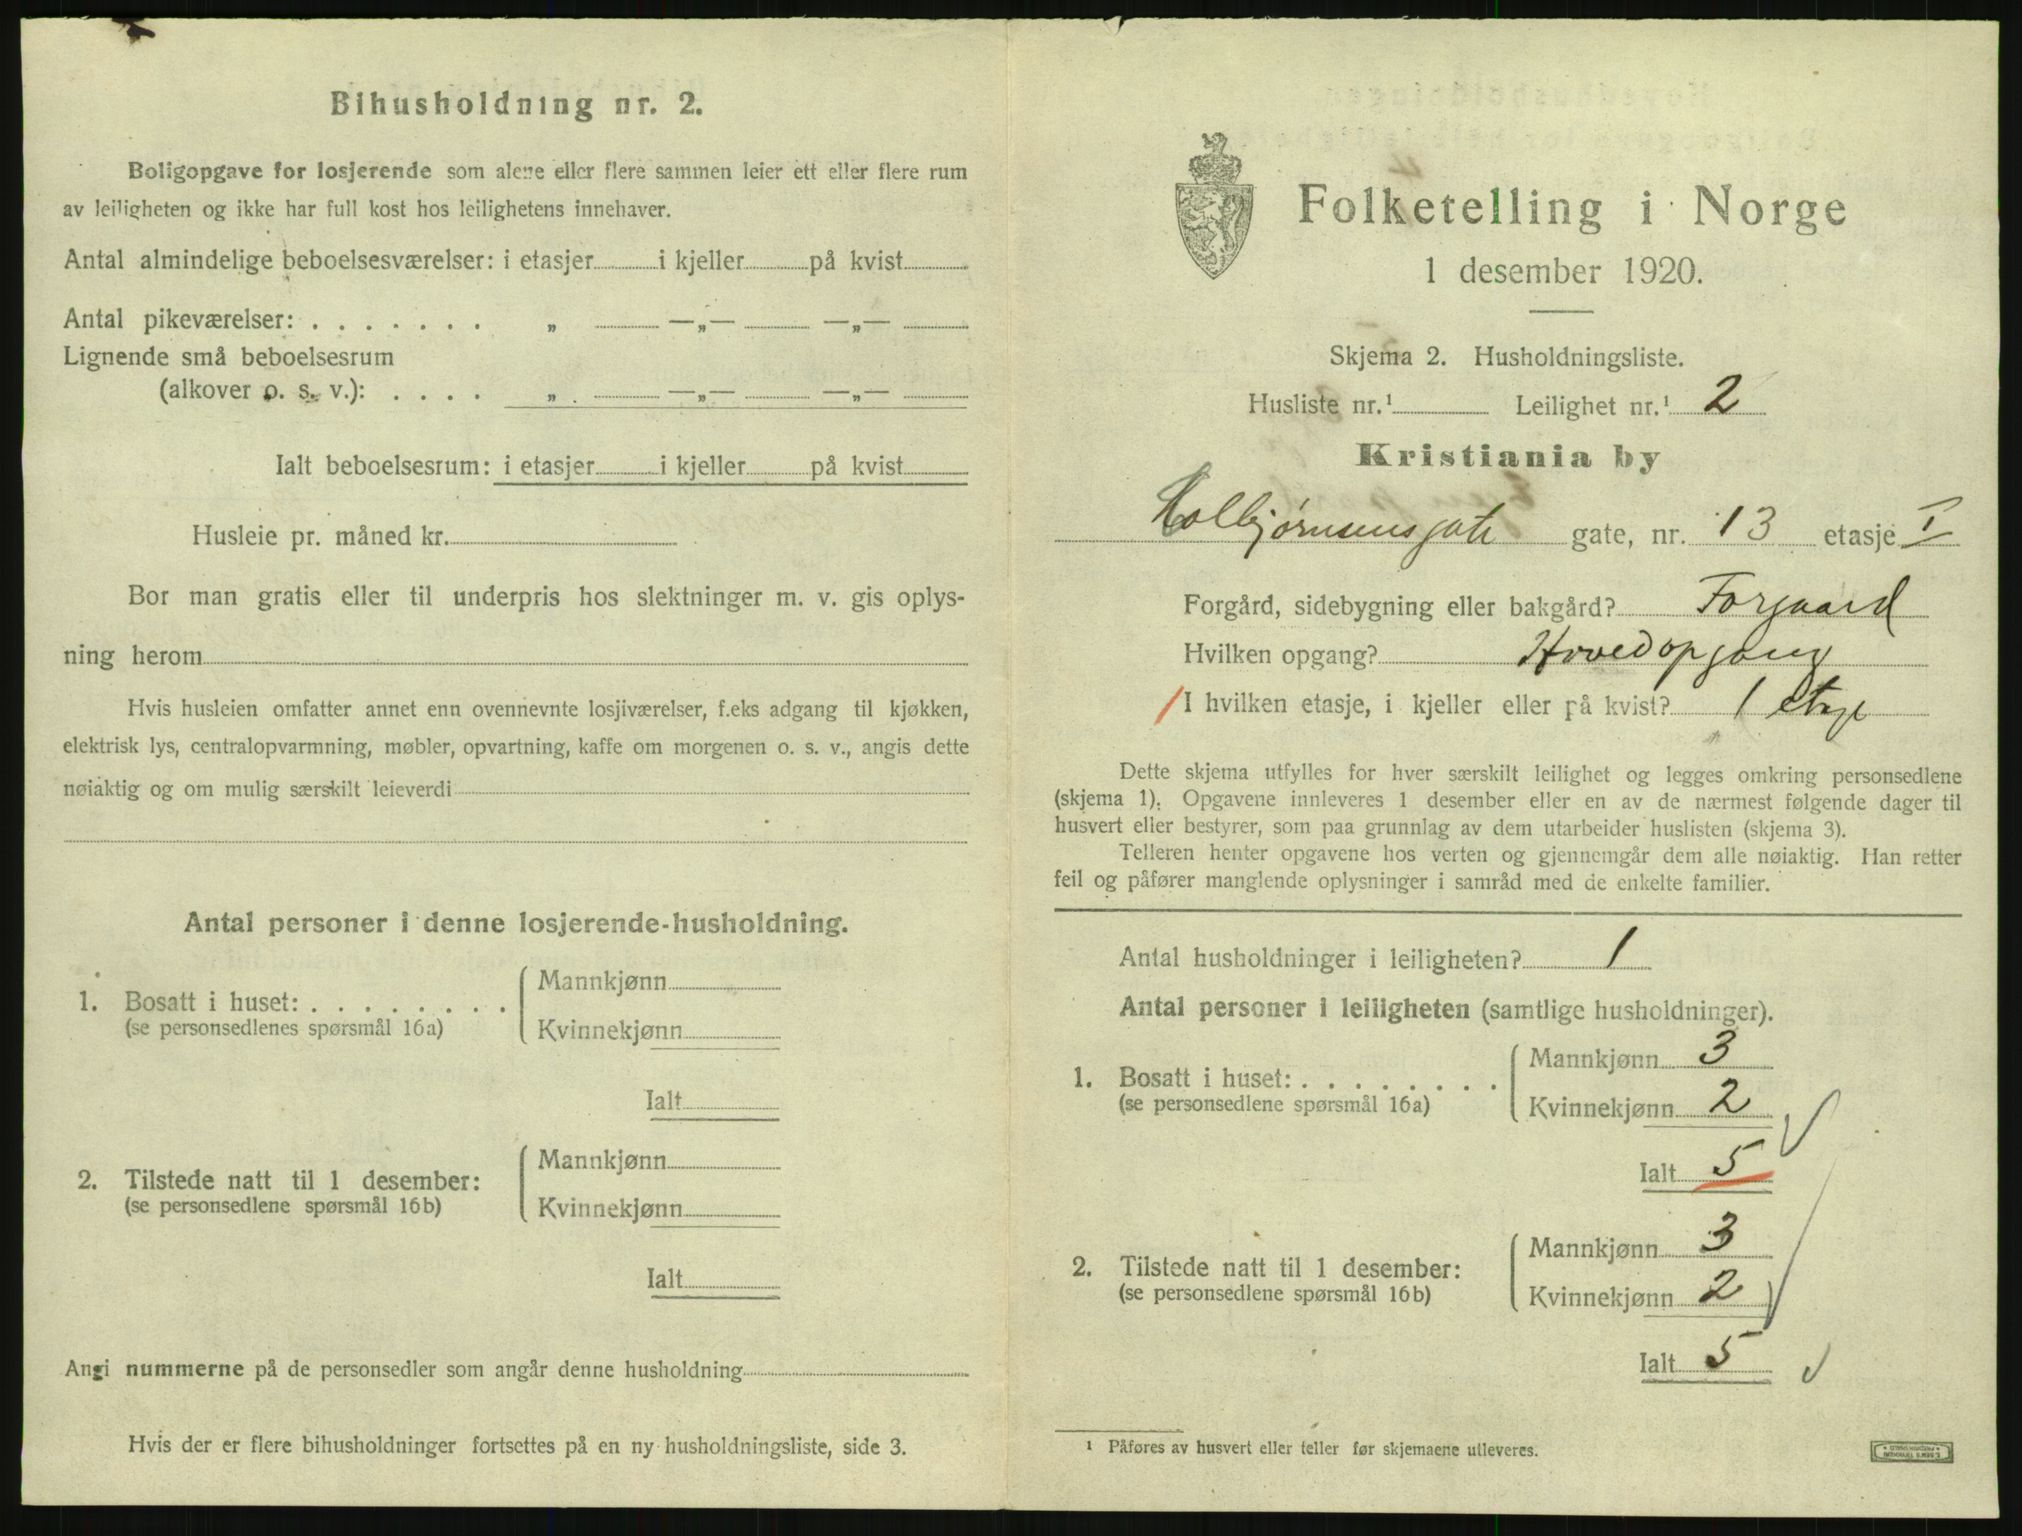 Bihusholdning nr. 2.
Boligopgave for losjerende som alene eller flere sammen leier ett eller flere rum
av leiligheten og ikke har full kost hos leilighetens innehaver.
Antal almindelige beboelsesværelser: i etasjer i kjeller på kvist
Antal pikeværelser: . . . . . . . „ —„— —„—
Lignende små beboelsesrum
(alkover o. s. v.): . . . . „ —„— —„—
Ialt beboelsesrum: i etasjer i kjeller på kvist
Husleie pr. måned kr.
Bor man gratis eller til underpris hos slektninger m. v. gis oplys-
ning herom
Hvis husleien omfatter annet enn ovennevnte losjiværelser, f.eks adgang til kjøkken,
elektrisk lys, centralopvarmning, møbler, opvartning, kaffe om morgenen o. s. v., angis dette
nøiaktig og om mulig særskilt leieverdi
Antal personer i denne losjerende-husholdning.
1. Bosatt i huset: . . . . . . . .
(se personsedlenes spørsmål 16a)
Mannkjønn
Kvinnekjønn
Ialt
2. Tilstede natt til 1 desember:
(se personsedlene spørsmål 16b)
Mannkjønn
Kvinnekjønn
Ialt
Angi nummerne på de personsedler som angår denne husholdning
Hvis der er flere bihusholdninger fortsettes på en ny husholdningsliste, side 3.
Folketelling i Norge
1 desember 1920.
Skjema 2. Husholdningsliste.
Husliste nr.¹ Leilighet nr.¹ 2
Kristiania by
Kolbjørnsensgate gate, nr. 13 etasje I
Forgård, sidebygning eller bakgård? Forgaard
Hvilken opgang? Hovedopgang
I hvilken etasje, i kjeller eller på kvist? 1 etage
Dette skjema utfylles for hver særskilt leilighet og legges omkring personsedlene
(skjema 1). Opgavene innleveres 1 desember eller en av de nærmest følgende dager til
husvert eller bestyrer, som paa grunnlag av dem utarbeider huslisten (skjema 3).
Telleren henter opgavene hos verten og gjennemgår dem alle nøiaktig. Han retter
feil og påfører manglende oplysninger i samråd med de enkelte familier.
Antal husholdninger i leiligheten? 1
Antal personer i leiligheten (samtlige husholdninger).
1. Bosatt i huset: . . . . . . . .
(se personsedlene spørsmål 16a)
Mannkjønn 3
Kvinnekjønn 2
Ialt 5
2. Tilstede natt til 1 desember:
(se personsedlene spørsmål 16b)
Mannkjønn 3
Kvinnekjønn 2
Ialt 5
¹ Påføres av husvert eller teller før skjemaene utleveres.